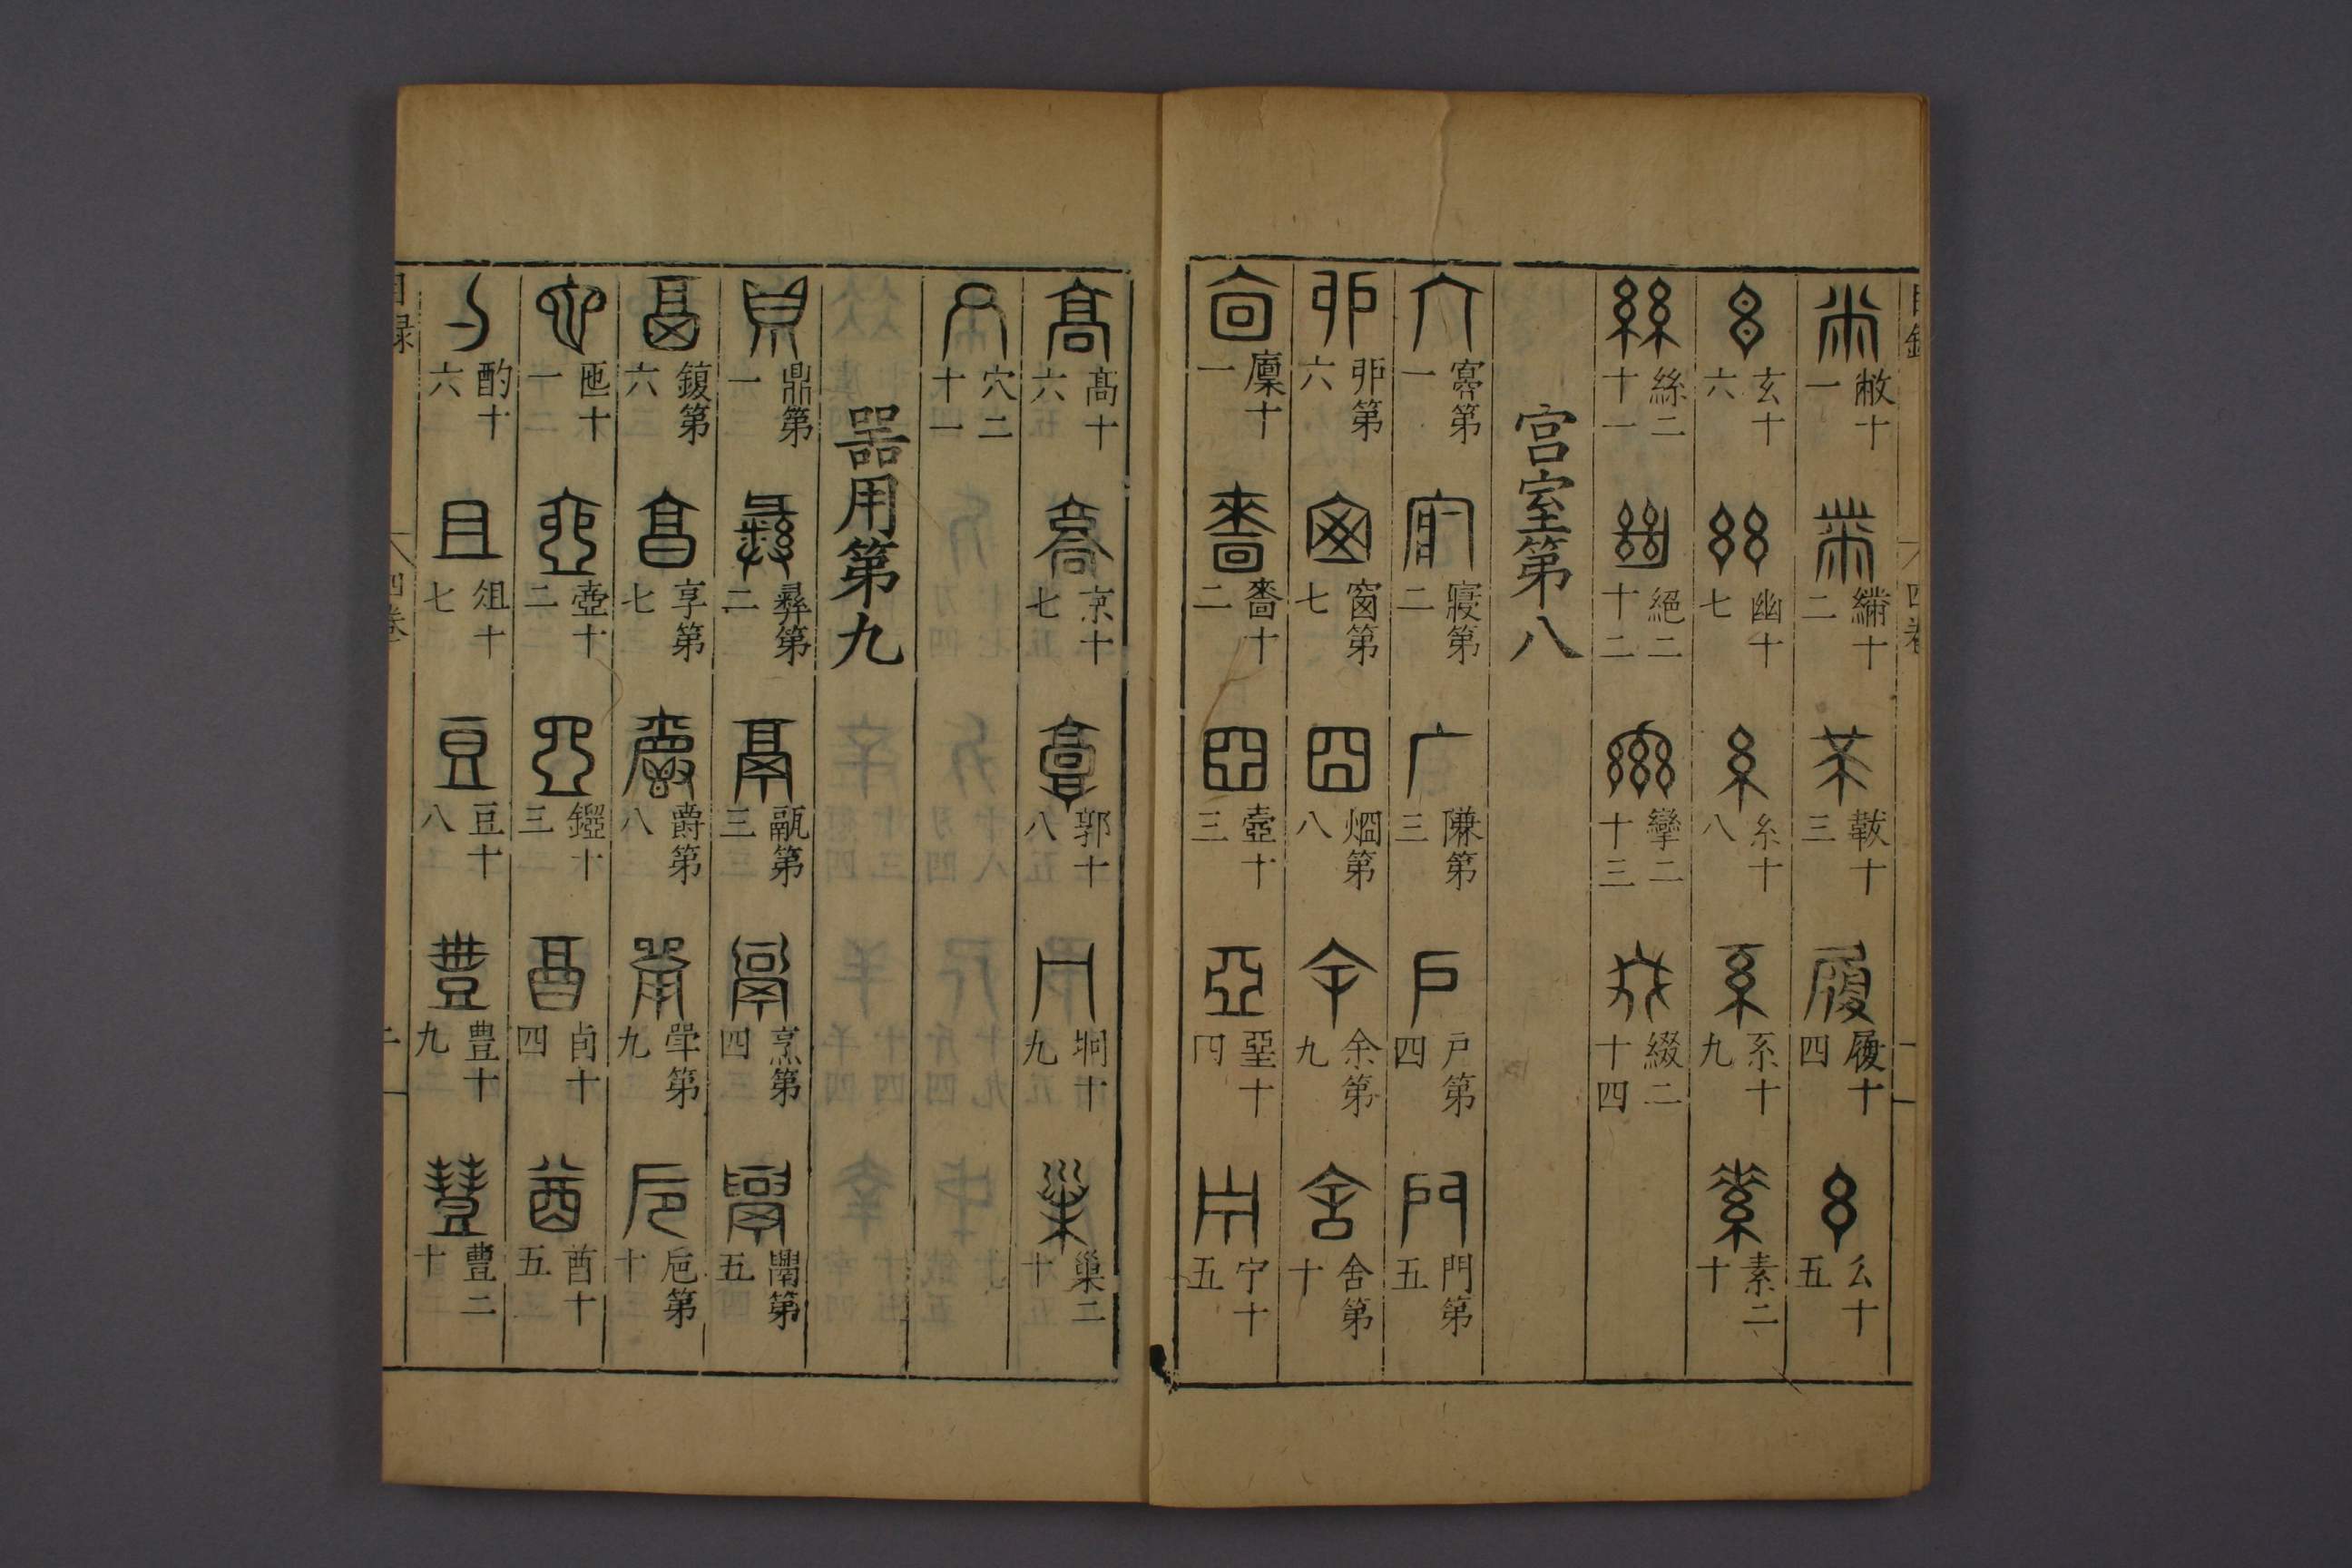 敝十一 黹十二 韍十三 履十四 幺十五
玄十六 幽十七 糸十八 系十九 素二十
絲二十一 絕二十二 孿二十三 綴二十四
宫室第八
第一 寢第二 第三 戸第四 門第五
戼第六 窗第七 第八 余第九 舍第十
廩十一 嗇十二 壼十三 堊十四 宁十五
髙十六 京十七 郭十八 坰十九 巢二十
穴二十一
噐用第九
鼎第一 彝第二 鬲第三 烹第四 第五
鍑第六 享第七 爵第八 斝第九 巵第十
匜十一 壺十二 鐙十三 卣十四 酋十五
酌十六 俎十七 豆十八 豊十九 豐二十
目録 四卷